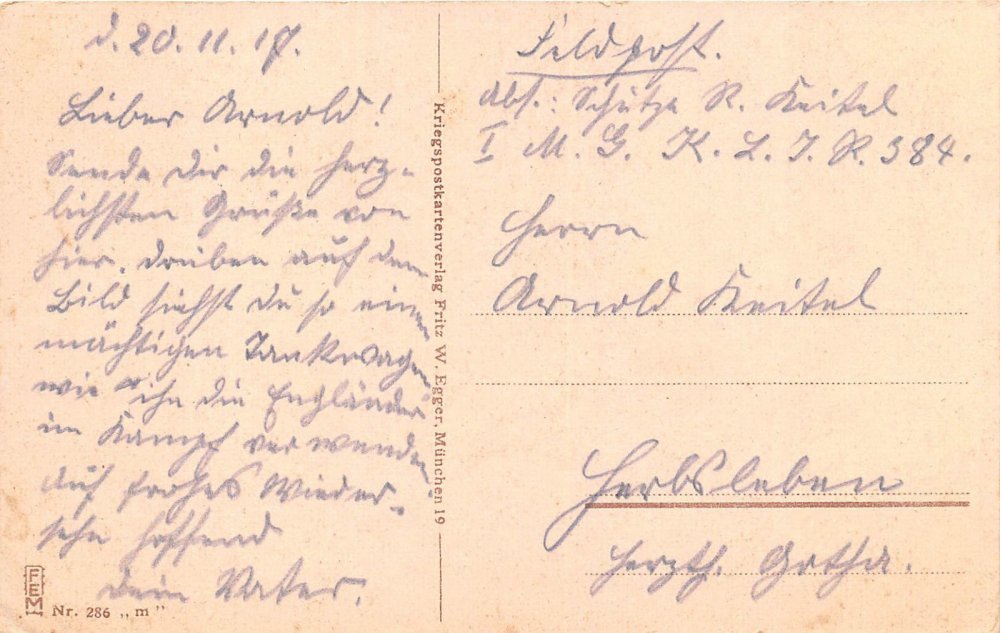 d. 20.11.17.
Lieber Arnold!
Sende Dir die herz-
lichsten Grüße von
hier. Drüben auf dem
Bild siehst Du so einen
mächtigen Tankwagen
wie ihn die Engländer
im Kampf verwenden.
Auf frohes Wieder-
sehn hoffend
Dein Vater.
FEM
Nr. 286 „m"
Kriegspostkartenverlag Fritz W. Egger, München 19
Feldpost.
Abs.: Schütze R. Keitel
I M. G. K. L. I. R. 384.
Herrn
Arnold Keitel
Herbsleben
Herzth. Gotha.